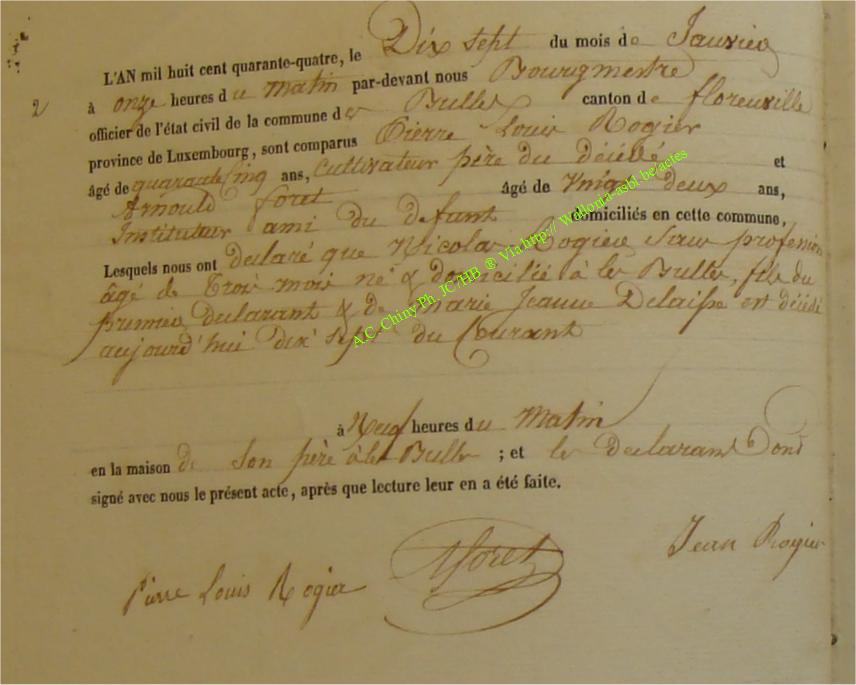 L'AN mil huit cent quarante-quatre, le Dix sept du mois de Janvier
2
à onze heures du matin par-devant nous Bourgmestre
officier de l'état civil de la commune des Bulles canton de florenville
province de Luxembourg, sont comparus Pierre Louis Rogier
âgé de quarante cinq ans, Cultivateur père du décédé et
Arnould foret âgé de vingt deux ans,
Instituteur ami du defunt domiciliés en cette commune,
Lesquels nous ont declaré que Nicolas Rogier Sans profession
âgé de trois mois né & domicilié à les Bulles, fils du
premier declarant & de Marie Jeanne Delaisse est décédé
aujourd'hui dix sept du Courant
à Neuf heures du Matin
en la maison de son père à les Bulles ; et les declarants ont
signé avec nous le présent acte, après que lecture leur en a été faite.
Pierre Louis Rogier
Aforet
Jean Rogier
A.C. Chiny Ph. JC/HB ® Via http:// Wallonia-asbl be/actes